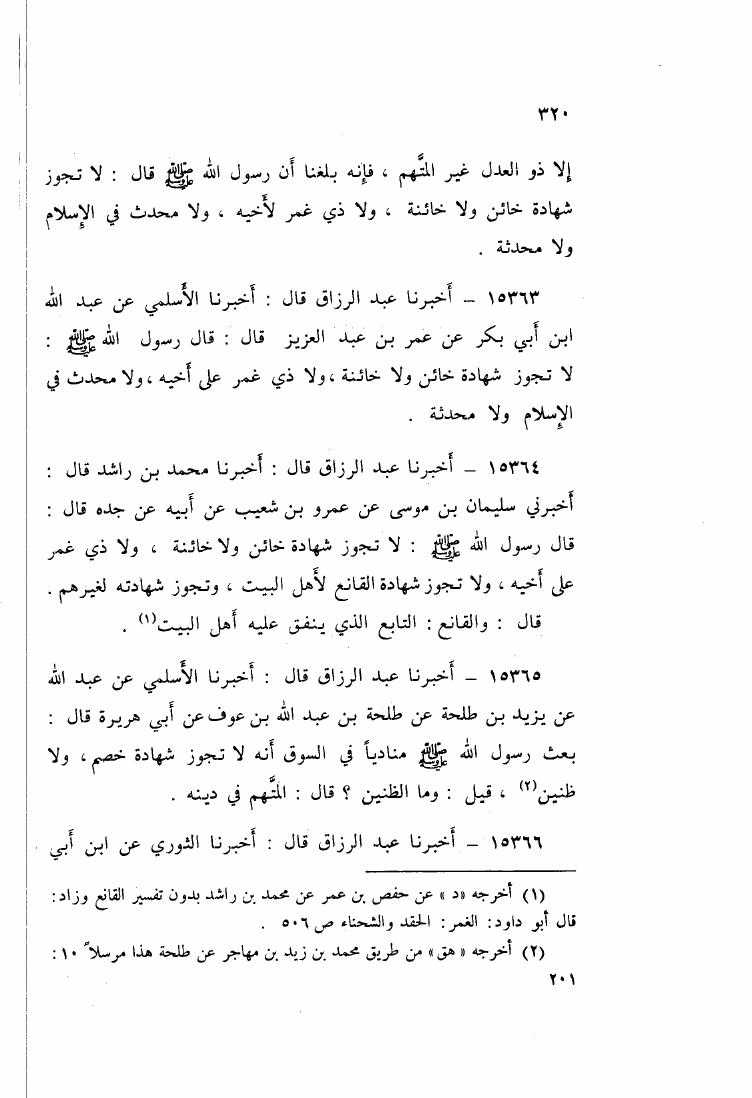 ٣٢٠
إلا ذو العدل غير المتَّهم ، فإنه بلغنا أن رسول الله ﷺ قال : لا تجوز
شهادة خائن ولا خائنة ، ولا ذي غمر لأخيه ، ولا محدث في الإسلام
ولا محدثة .
١٥٣٦٣ – أخبرنا عبد الرزاق قال : أخبرنا الأسلمي عن عبد الله
ابن أبي بكر عن عمر بن عبد العزيز قال : قال رسول الله ﷺ :
لا تجوز شهادة خائن ولا خائنة ، ولا ذي غمر على أخيه ، ولا محدث في
الإسلام ولا محدثة .
١٥٣٦٤ – أخبرنا عبد الرزاق قال : أخبرنا محمد بن راشد قال :
أخبرني سليمان بن موسى عن عمرو بن شعيب عن أبيه عن جده قال :
قال رسول الله ﷺ : لا تجوز شهادة خائن ولا خائنة ، ولا ذي غمر
على أخيه ، ولا تجوز شهادة القانع لأهل البيت ، وتجوز شهادته لغيرهم .
قال : والقانع : التابع الذي ينفق عليه أهل البيت(١) .
١٥٣٦٥ – أخبرنا عبد الرزاق قال : أخبرنا الأسلمي عن عبد الله
عن يزيد بن طلحة عن طلحة بن عبد الله بن عوف عن أبي هريرة قال :
بعث رسول الله ﷺ منادياً في السوق أنه لا تجوز شهادة خصم ، ولا
ظنين(٢) ، قيل : وما الظنين ؟ قال : المتَّهم في دينه .
١٥٣٦٦ – أخبرنا عبد الرزاق قال : أخبرنا الثوري عن ابن أبي
(١) أخرجه «د» عن حفص بن عمر عن محمد بن راشد بدون تفسير القانع وزاد:
قال أبو داود: الغمر: الحقد والشحناء ص ٥٠٦ .
(٢) أخرجه «هق» من طريق محمد بن زيد بن مهاجر عن طلحة هذا مرسلاً ١٠:
٢٠١